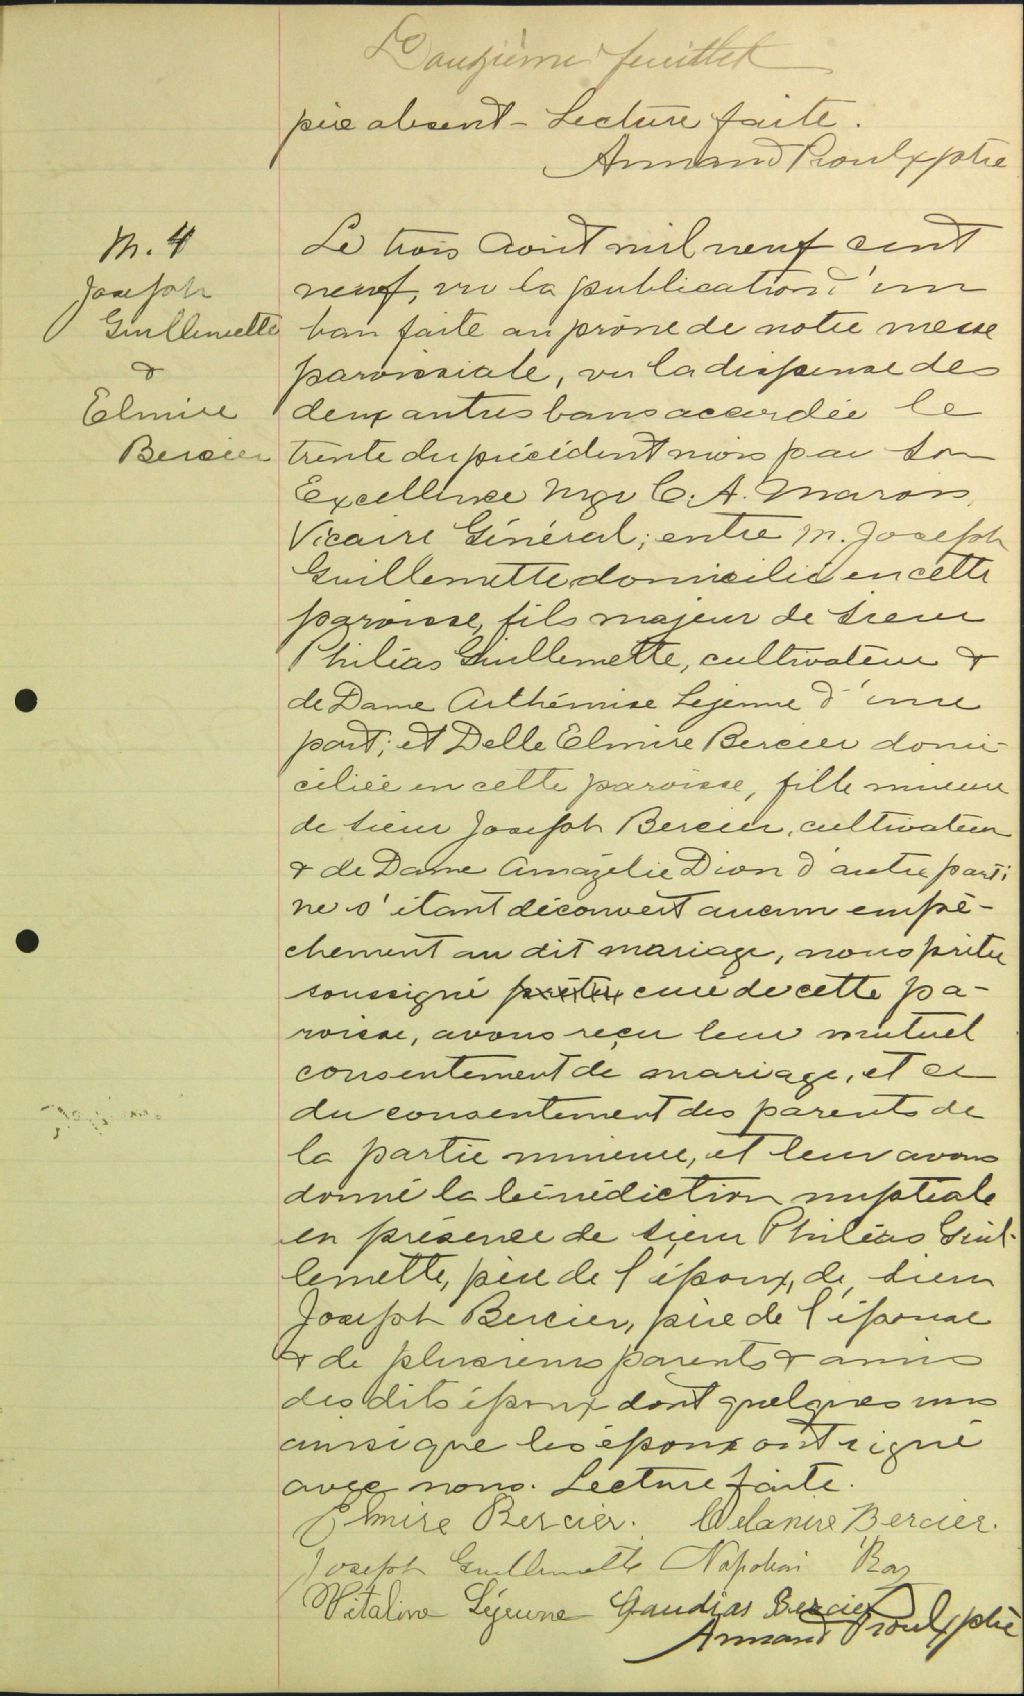 Douzième feuillet
père absent - Lecture faite.
Armand Proulx ptre
M. 4
Joseph
Guillemette
&
Elmire
Bercier
Le trois Août mil neuf cent
neuf, vu la publication d'un
ban faite au prône de notre messe
paroissiale, vu la dispense des
deux autres bans accordée le
trente du précédent mois par Son
Excellence Mgr C. A. Marois,
Vicaire Général; entre M. Joseph
Guillemette domicilié en cette
paroisse, fils majeur de sieur
Philias Guillemette, cultivateur &
de Dame Arthémise Lejeune d'une
part; et Delle Elmire Bercier domi-
ciliée en cette paroisse, fille mineure
de sieur Joseph Bercier, cultivateur
& de Dame Amazélie Dion d'autre part;
ne s'étant découvert aucun empê-
chement au dit mariage, nous prêtre
soussigné prêtre curé de cette pa-
roisse, avons reçu leur mutuel
consentement de mariage, et ce
du consentement des parents de
la partie mineure, et leur avons
donné la bénédiction nuptiale
en présence de sieur Philias Guil-
lemette, père de l'époux, de sieur
Joseph Bercier, père de l'épouse
& de plusieurs parents & amis
des dits époux dont quelques uns
ainsi que les époux ont signé
avec nous. Lecture faite.
Elmire Bercier. Délanire Bercier.
Joseph Guillemette Napoléon Roy
Vitaline Léjeune Gaudias Bercier
Armand Proulx ptre